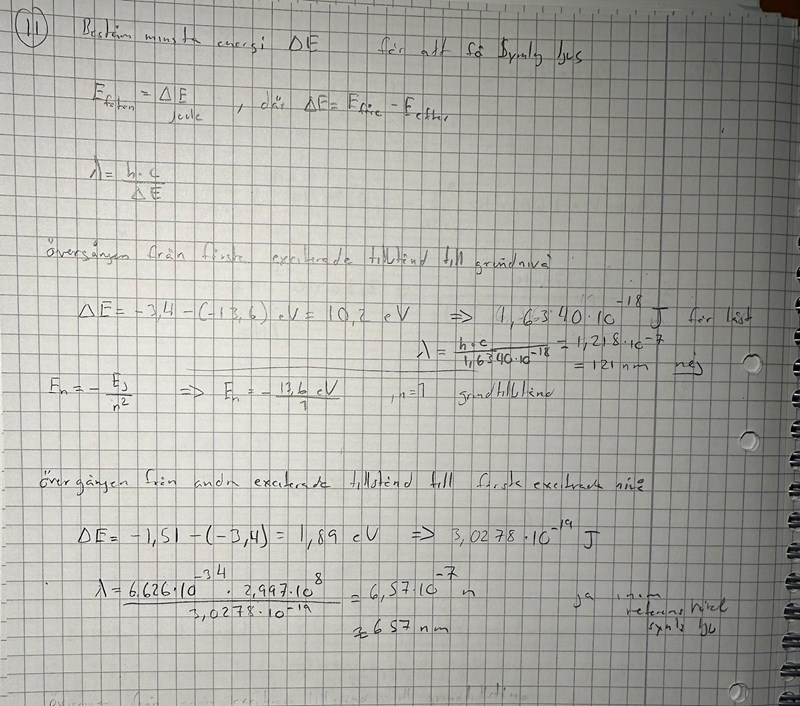 11 Bestäm minsta energi ΔE för att få synlig ljus
E foton = ΔE joule , där ΔE = E före - E efter
λ = h·c / ΔE
övergången från första exciterade tillstånd till grundnivå
ΔE = -3,4 - (-13,6) eV = 10,2 eV => 1,6340·10^-18 J för låst
λ = h·c / 1,6340·10^-18 = 1,218·10^-7
= 121 nm nej
En = - EJ / n² => En = - 13,6 eV / 1 , n=1 grundtillstånd
övergången från andra exciterade tillstånd till första exciterade nivå
ΔE = -1,51 - (-3,4) = 1,89 eV => 3,0278·10^-19 J
λ = 6.626·10^-34 · 2,997·10^8 / 3,0278·10^-19 = 6,57·10^-7 n
≈ 657 nm
ja inom
referens
synlig ljus